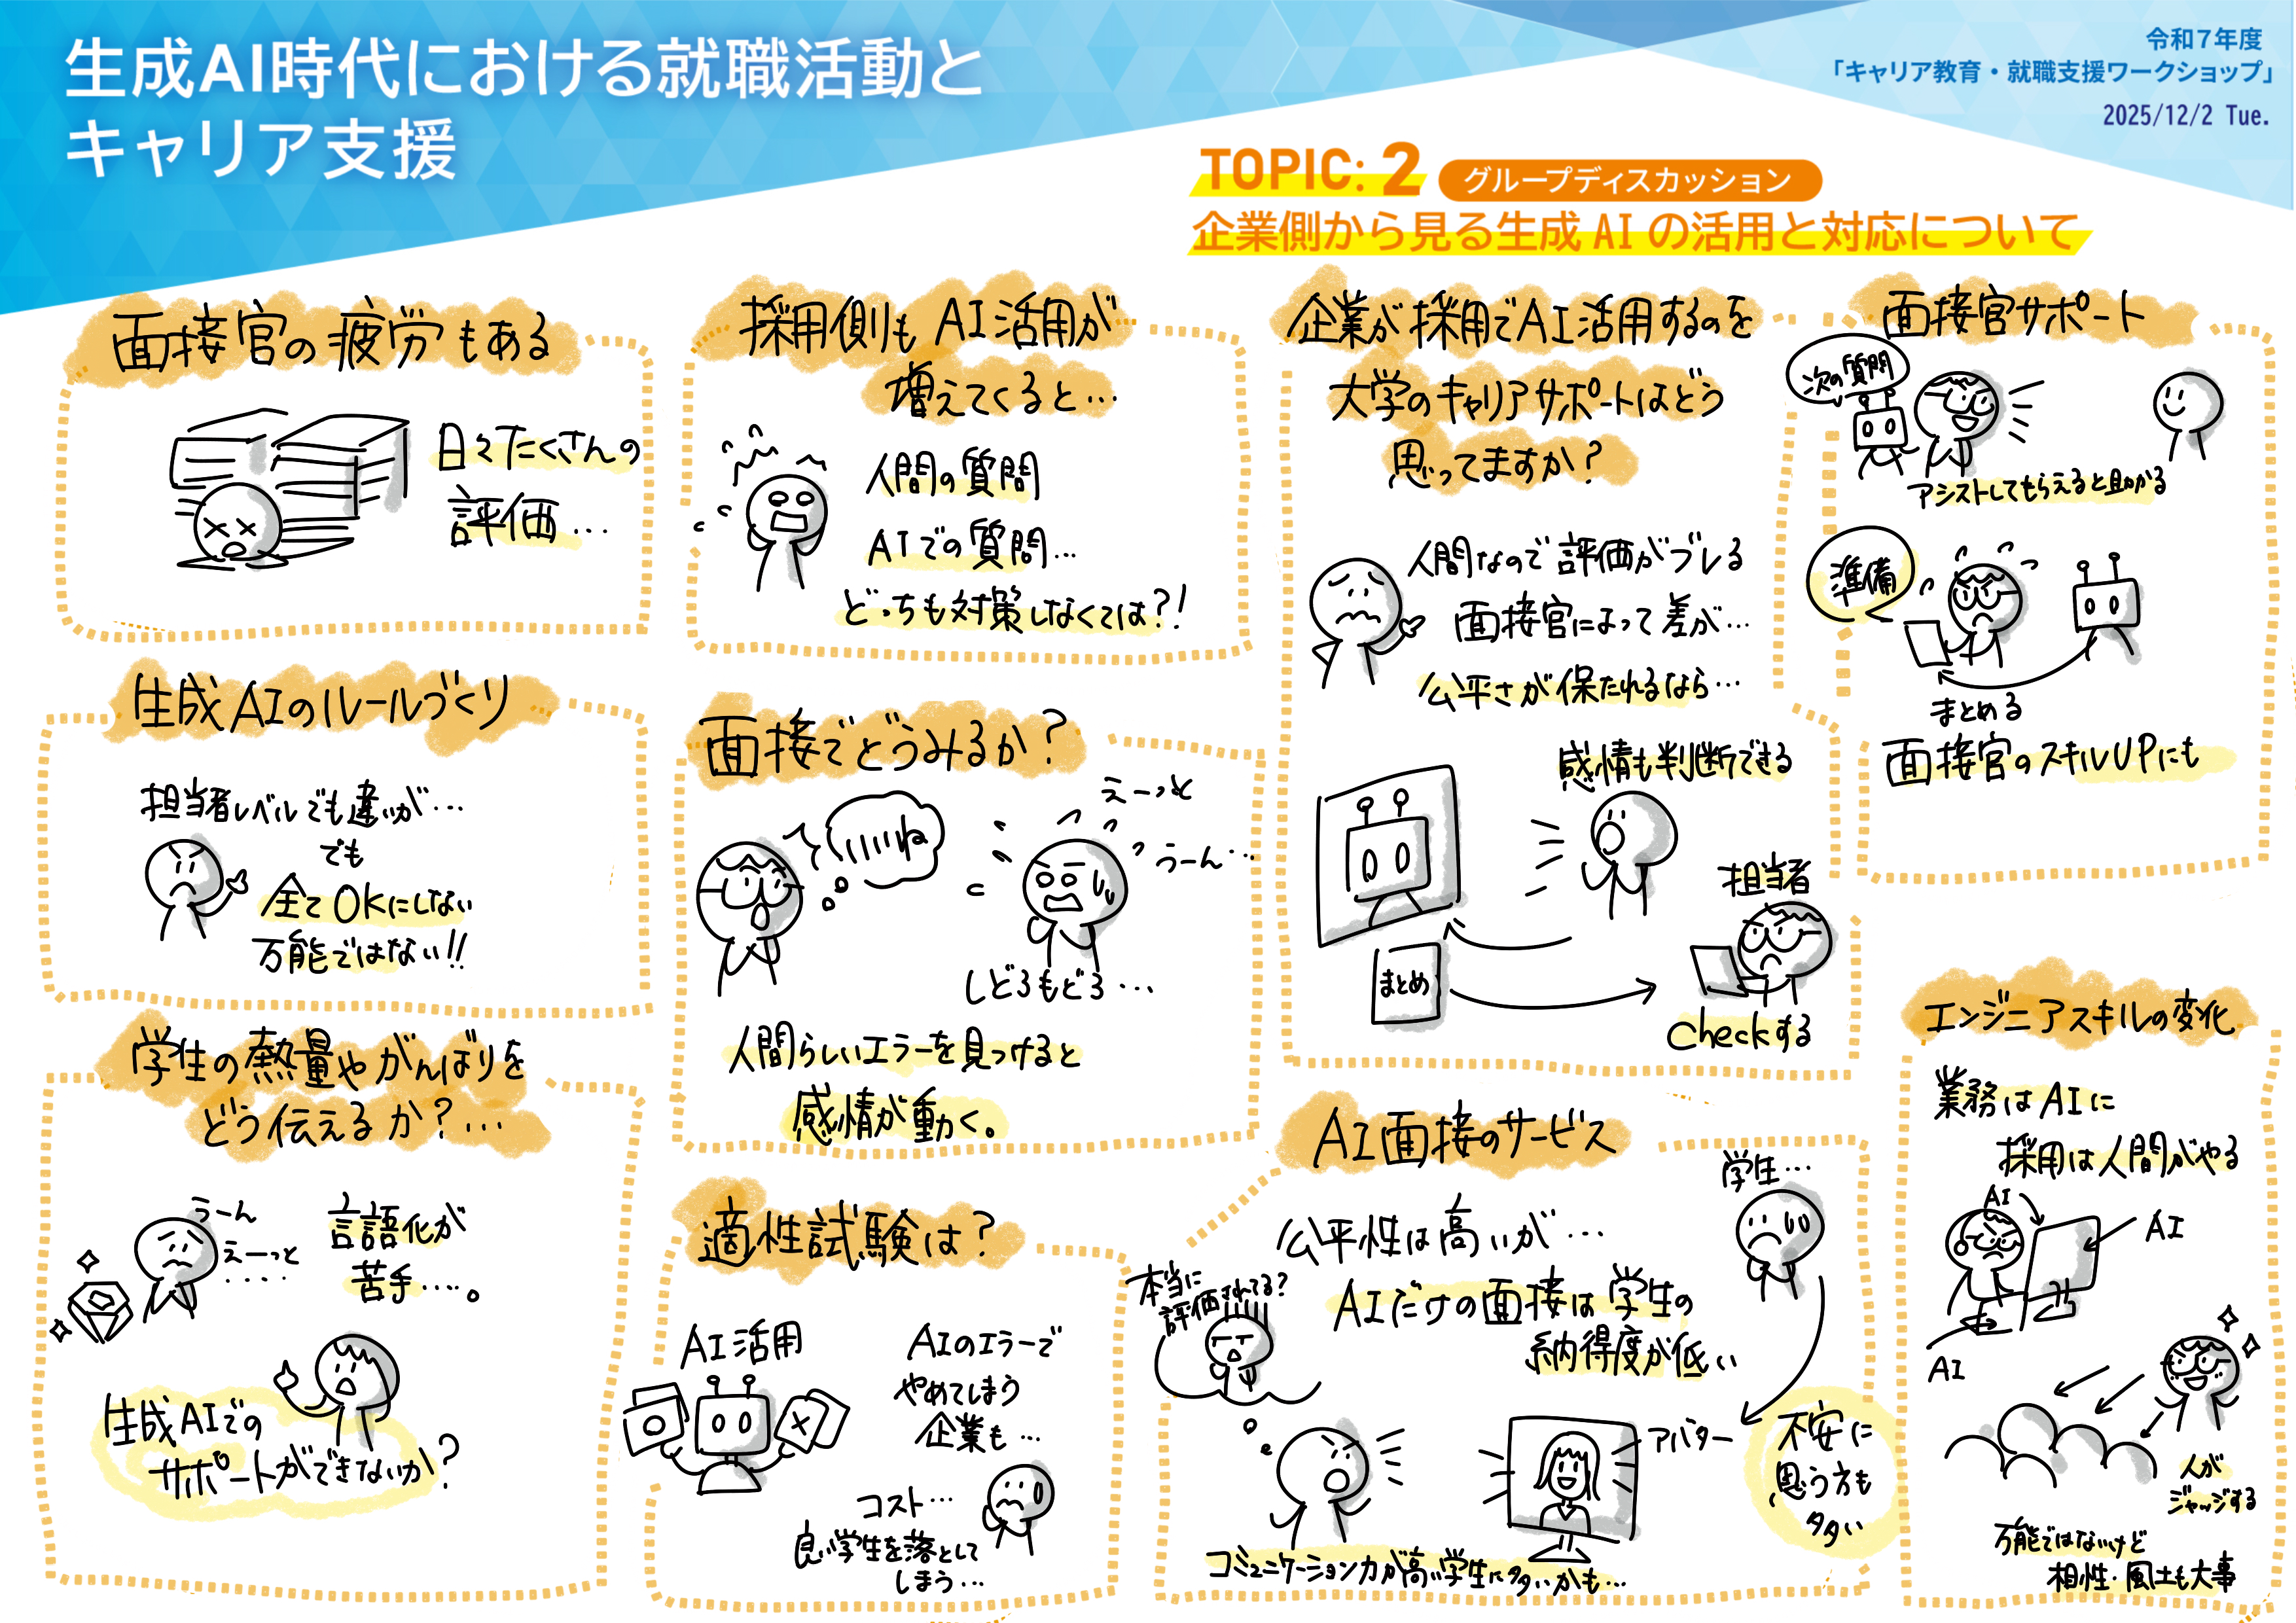 生成AI時代における就職活動と
キャリア支援
令和7年度
「キャリア教育・就職支援ワークショップ」
2025/12/2 Tue.
TOPIC: 2 グループディスカッション
企業側から見る生成 AI の活用と対応について
面接官の疲労もある
日々たくさんの
評価…
生成AIのルールづくり
担当者レベルでも違いが…
でも
全てOKにしない
万能ではない!!
学生の熱量やがんばりを
どう伝えるか?…
うーん
えーっと
.....
言語化が
苦手….。
生成AIでの
サポートができないか?
採用側もAI活用が
増えてくると…
人間の質問
AIでの質問…
どっちも対策しなくては?!
面接でどうみるか?
いいね
えーっと
うーん…
しどろもどろ…
人間らしいエラーを見つけると
感情が動く。
適性試験は?
AI活用
AIのエラーで
やめてしまう
企業も…
コスト…
良い学生を落として
しまう…
企業が採用でAI活用するのを
大学のキャリアサポートはどう
思ってますか?
人間なので評価がブレる
面接官によって差が…
公平さが保たれるなら…
感情も判断できる
まとめ
担当者
checkする
AI面接のサービス
公平性は高いが…
AIだけの面接は学生の
納得度が低い
本当に
評価されてる?
学生…
アバター
不安に
思う方も
多い
コミュニケーション力が高い学生に多いかも…
面接官サポート
次の質問
アシストしてもらえると助かる
準備
まとめる
面接官のスキルUPにも
エンジニアスキルの変化
業務はAIに
採用は人間がやる
AI
AI
AI
人が
ジャッジする
万能ではないけど
相性・風土も大事